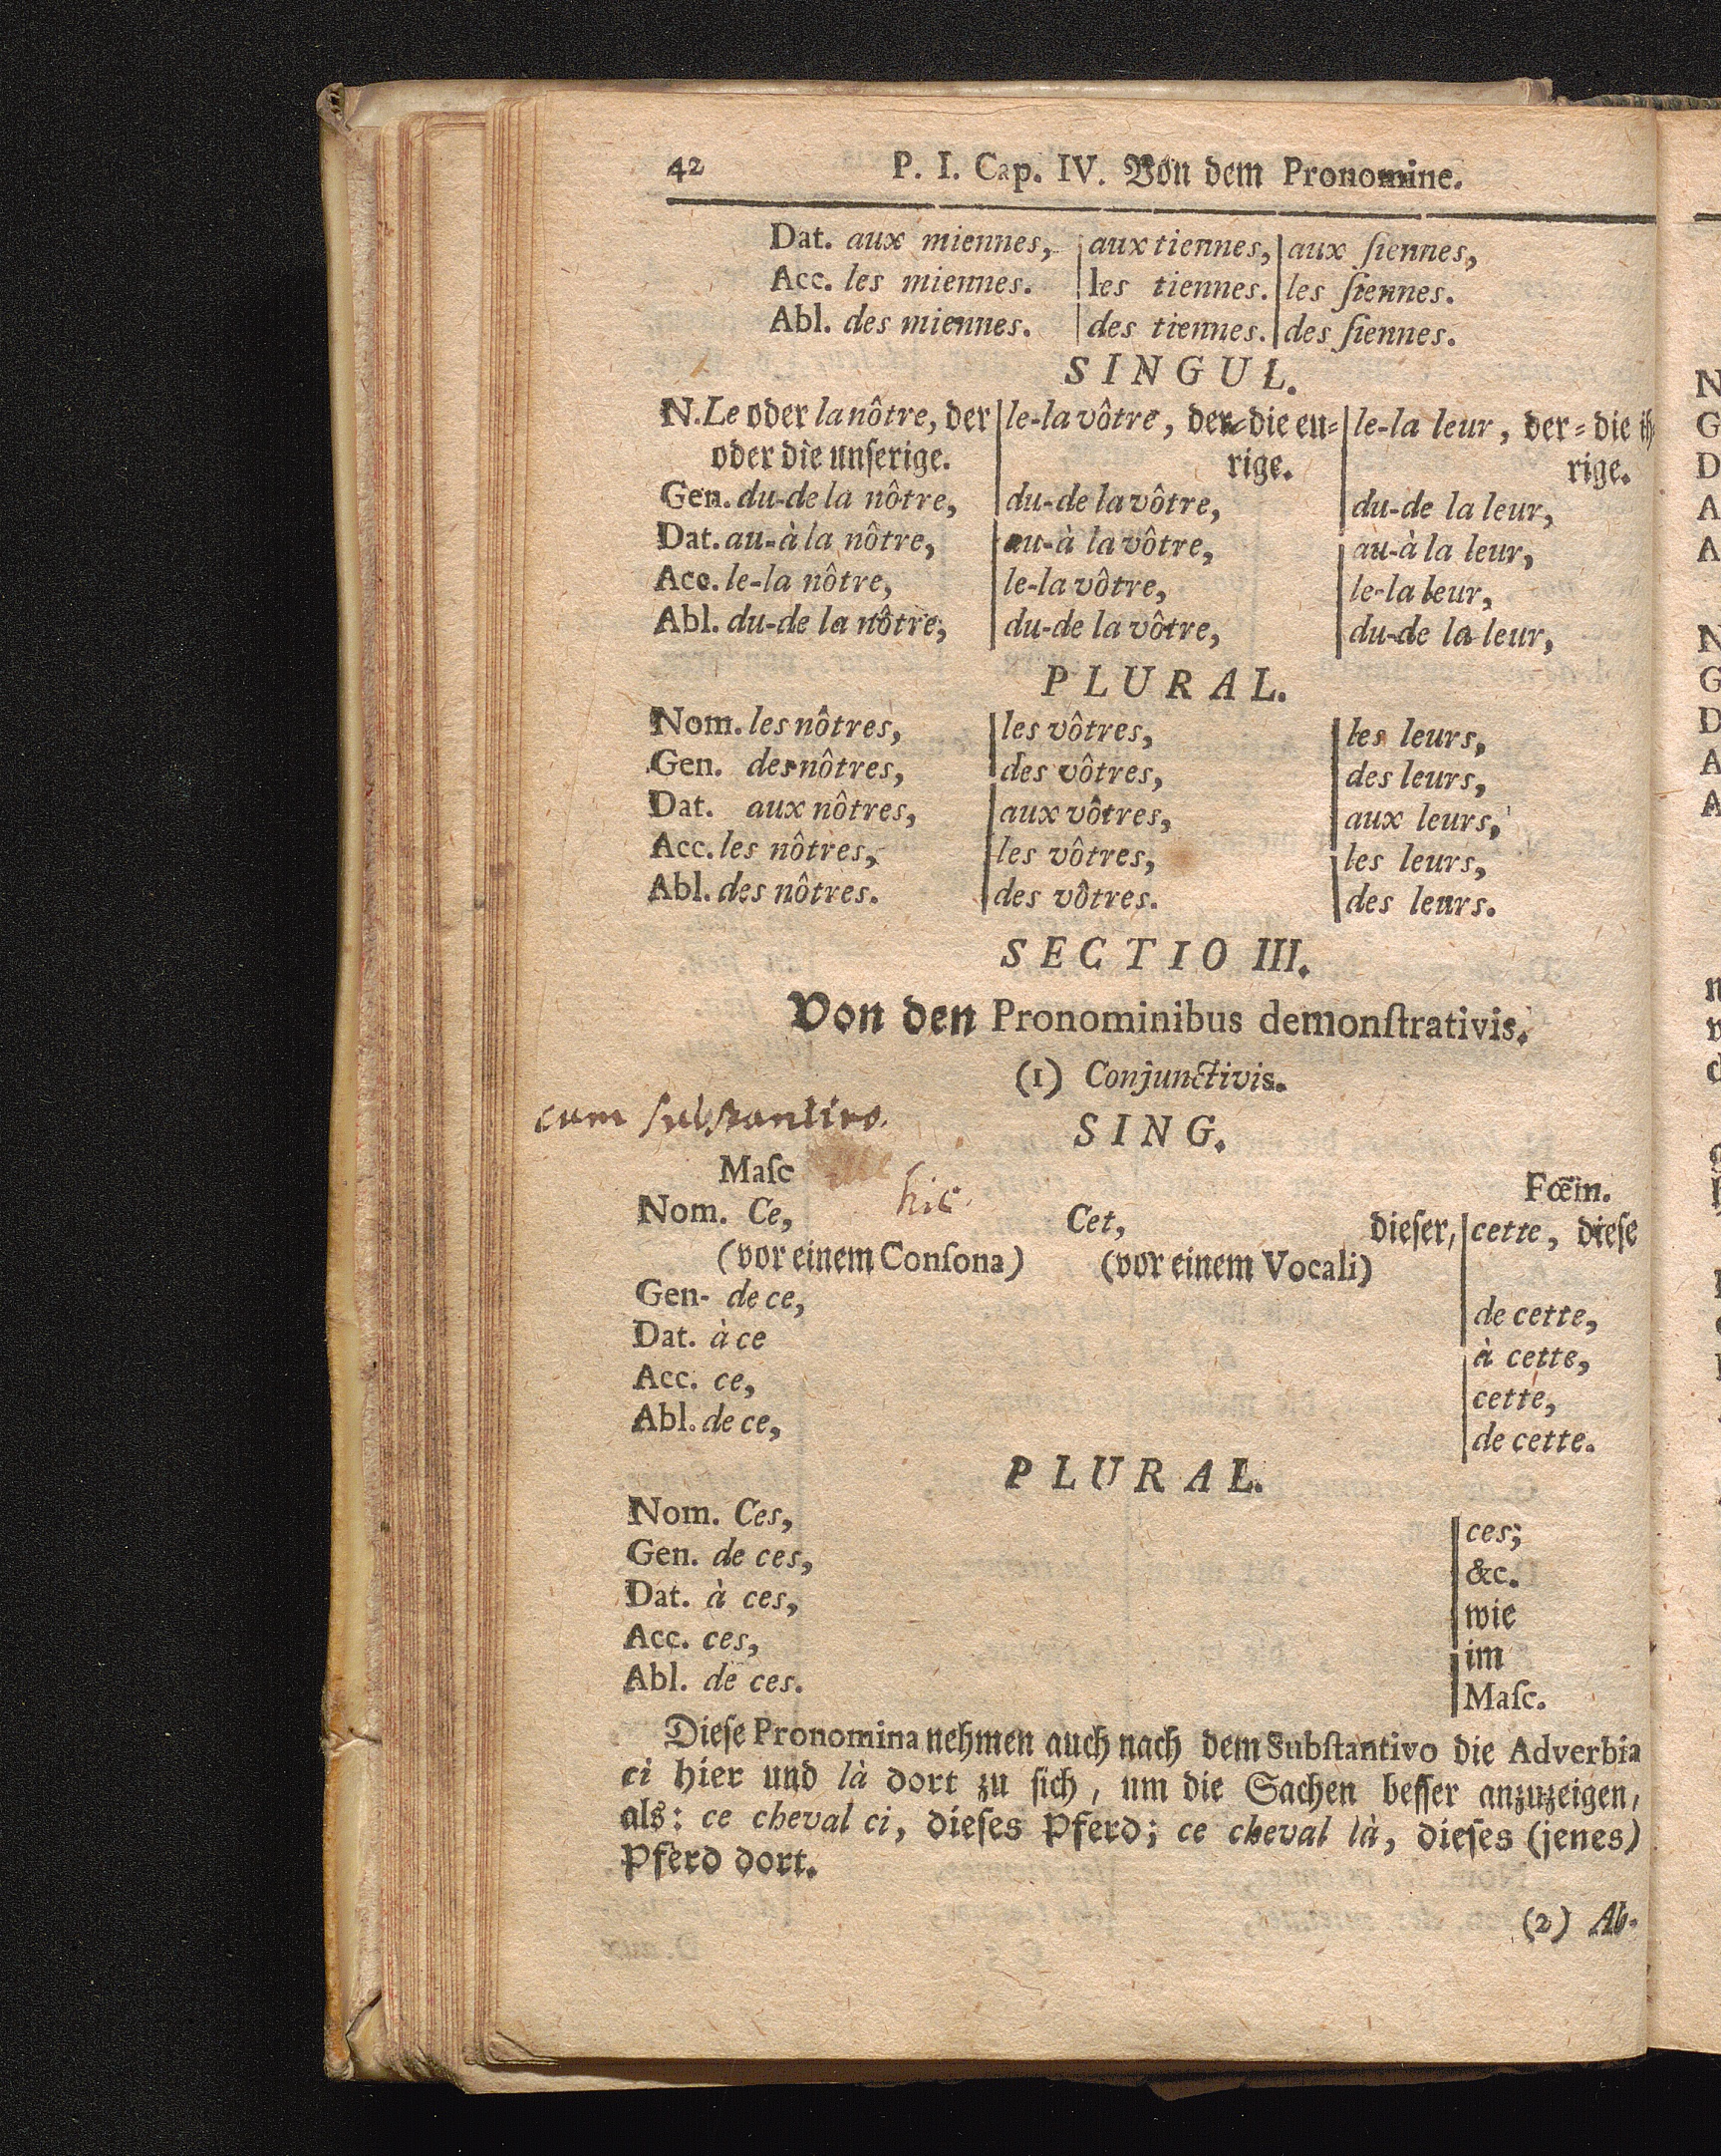 42 P. I. Cap. IV. Von dem Pronomine.
Dat. aux miennes, | aux tiennes, | aux ſiennes,
Acc. les miennes. | les tiennes. | les ſiennes.
Abl. des miennes. | des tiennes. | des ſiennes.
SINGUL.
N. Le oder la nôtre, der | le-la vôtre, der-die eu- | le-la leur, der-die ih-
oder die unſerige. | rige. | rige.
Gen. du-de la nôtre, | du-de la vôtre, | du-de la leur,
Dat. au-à la nôtre, | au-à la vôtre, | au-à la leur,
Acc. le-la nôtre, | le-la vôtre, | le-la leur,
Abl. du-de la nôtre, | du-de la vôtre, | du-de la leur,
PLURAL.
Nom. les nôtres, | les vôtres, | les leurs,
Gen. des nôtres, | des vôtres, | des leurs,
Dat. aux nôtres, | aux vôtres, | aux leurs,
Acc. les nôtres, | les vôtres, | les leurs,
Abl. des nôtres. | des vôtres. | des leurs.
SECTIO III.
Von den Pronominibus demonſtrativis.
(1) Conjunctivis.
cum ſubſtantivo.
SING.
Maſc Fœm.
Nom. Ce, hic Cet, dieſer, | cette, dieſe
(vor einem Conſona) (vor einem Vocali)
Gen- de ce, | de cette,
Dat. à ce | à cette,
Acc. ce, | cette,
Abl. de ce, | de cette.
PLURAL.
Nom. Ces, | ces;
Gen. de ces, | &c.
Dat. à ces, | wie
Acc. ces, | im
Abl. de ces. | Maſc.
Dieſe Pronomina nehmen auch nach dem Subſtantivo die Adverbia
ci hier und là dort zu ſich, um die Sachen beſſer anzuzeigen,
als: ce cheval ci, dieſes Pferd; ce cheval là, dieſes (jenes)
Pferd dort.
(2) Ab-